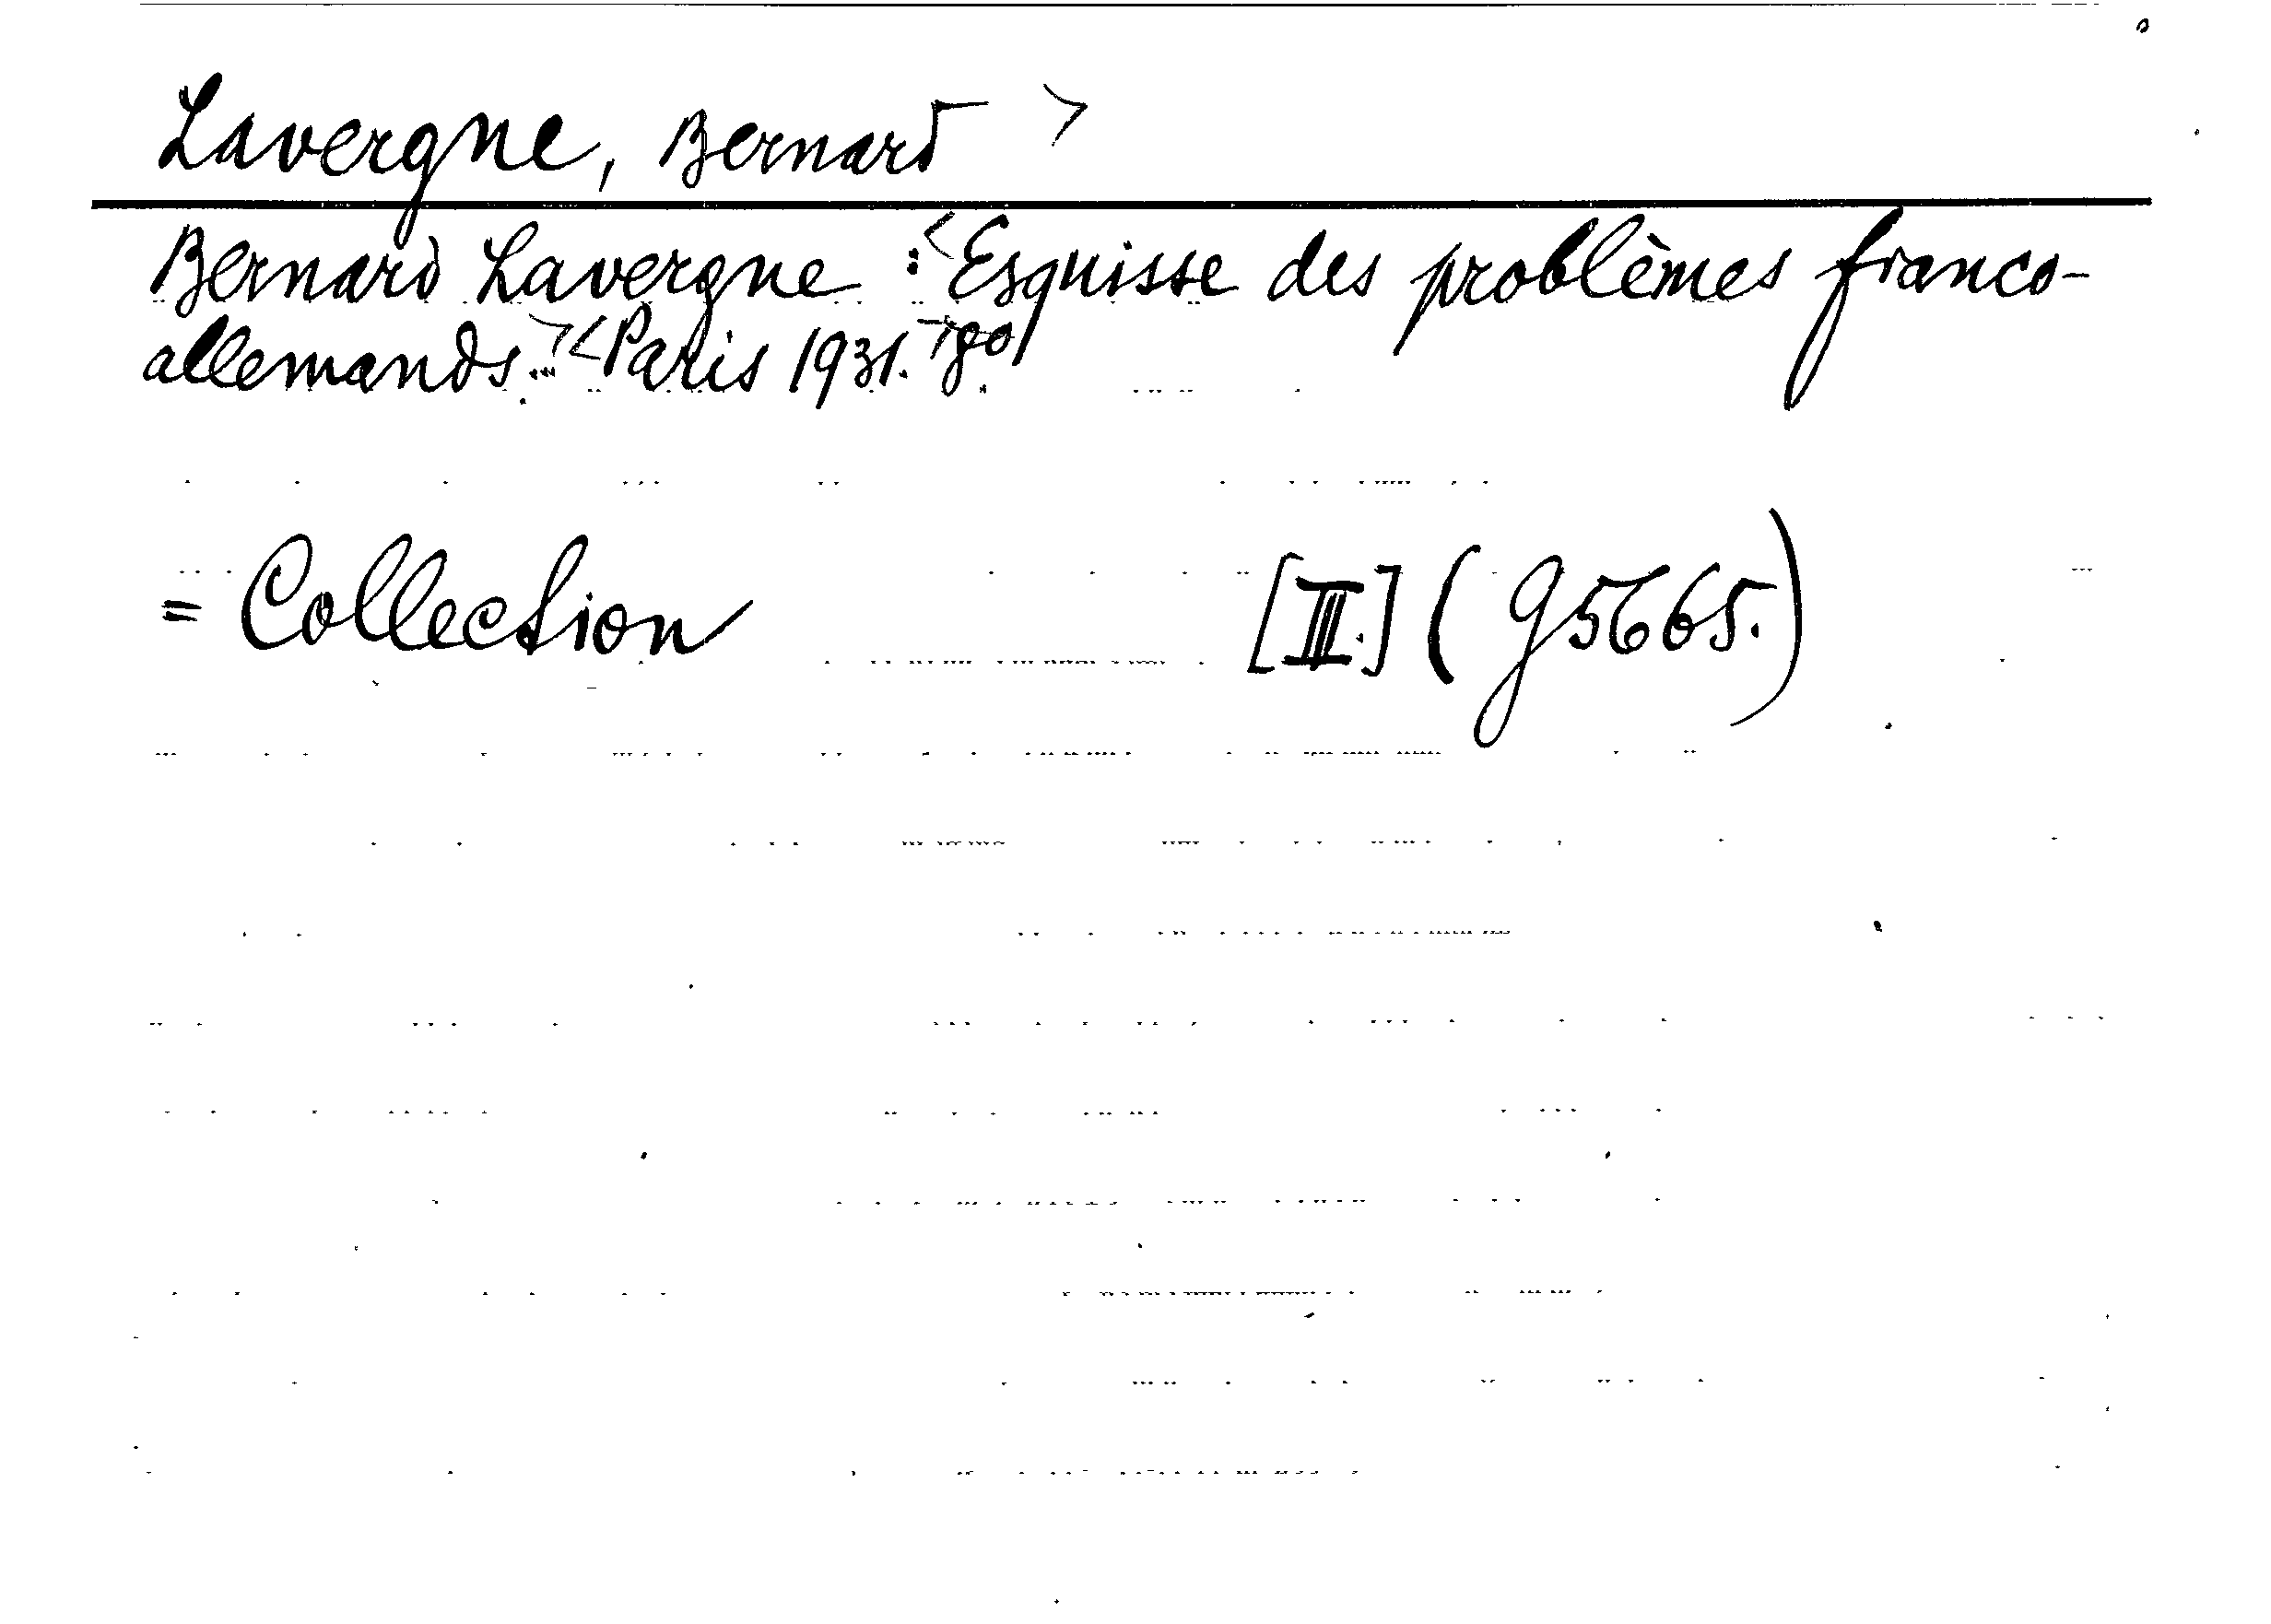 Lavergne, Bernard >
Bernard Lavergne : <Esquisse des problèmes franco-
allemands.> <Paris 1931.> 8°.
= Collection [III.] (g5665.)